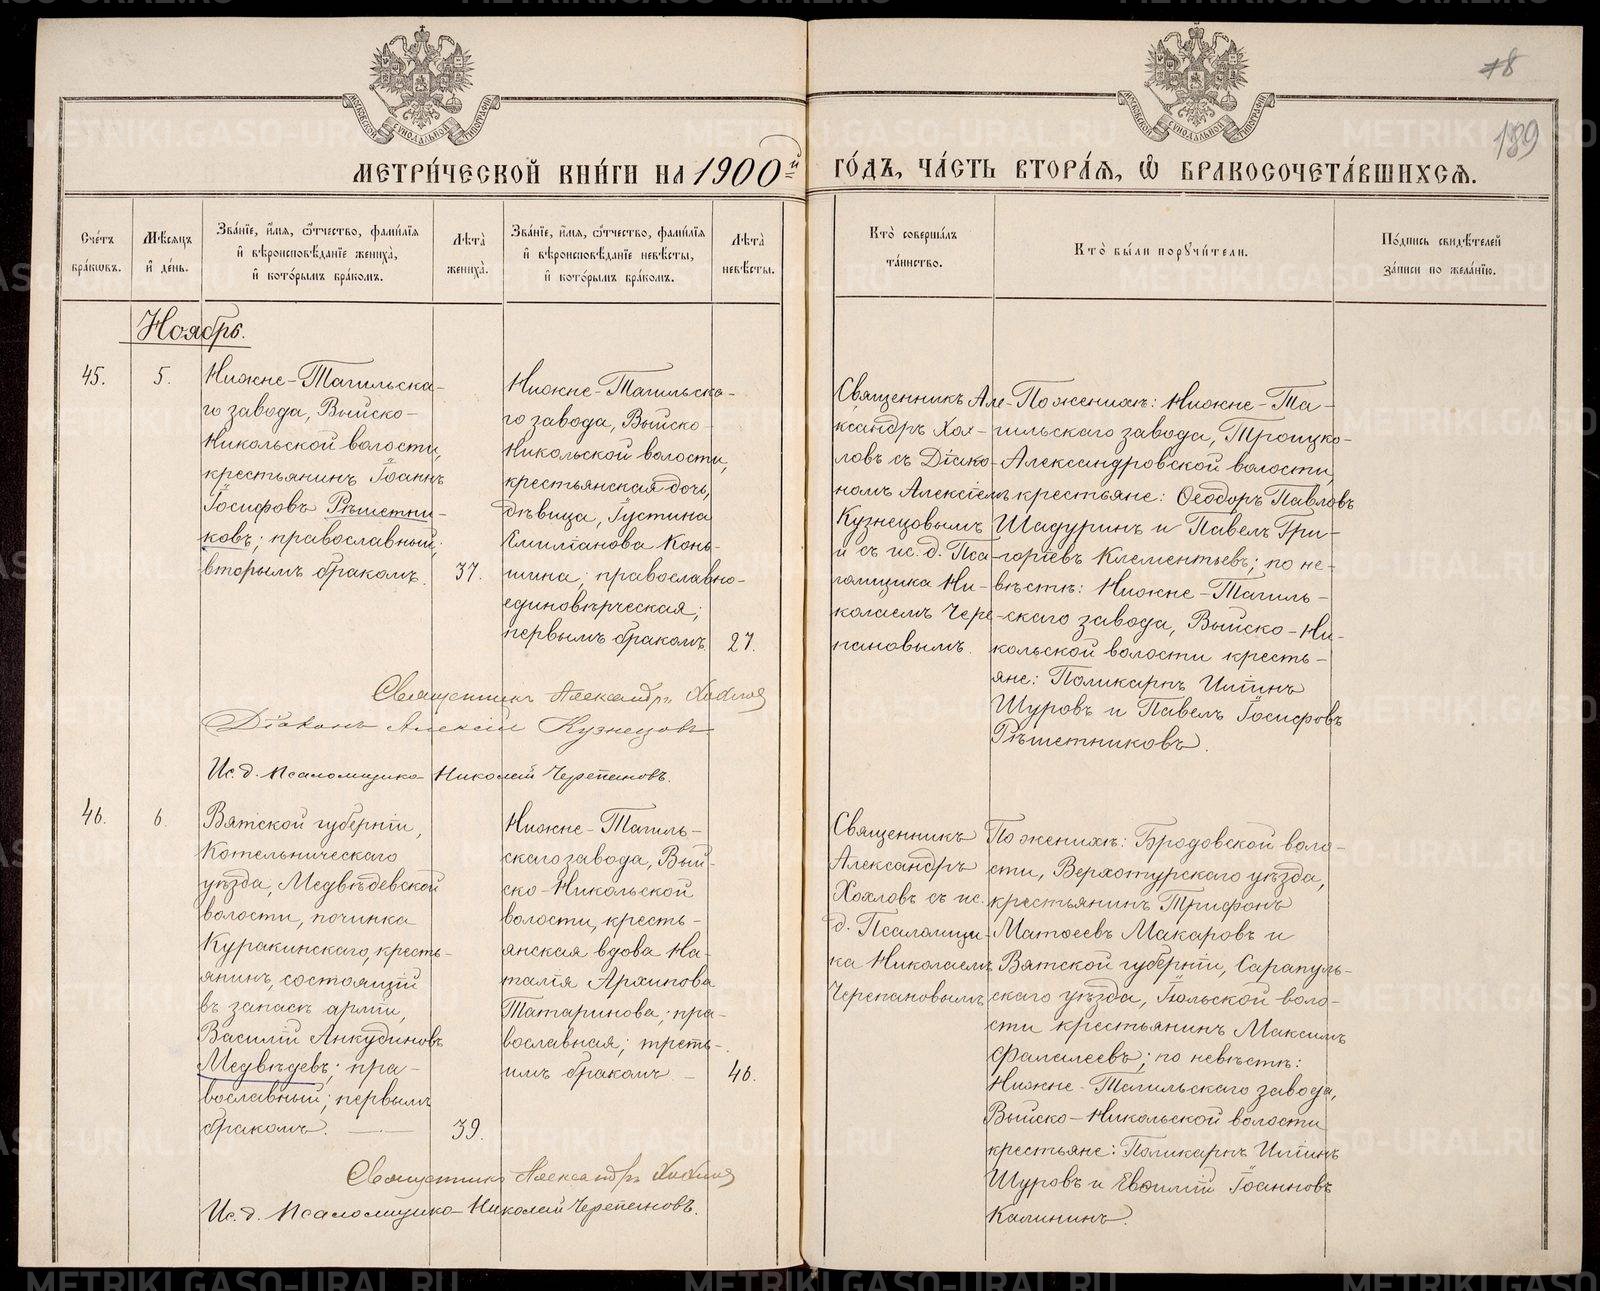 78
189
МОСКОВСКОЙ СѴНОДАЛЬНОЙ ТИПОГРАФІИ
МОСКОВСКОЙ СѴНОДАЛЬНОЙ ТИПОГРАФІИ
МЕТРИ́ЧЕСКОЙ КНИ́ГИ НА 1900й ГО́ДЪ, ЧА́СТЬ ВТОРА́Я, Ѽ БРАКОСОЧЕТА́ВШИХСЯ.
Сче́тъ
бра́кѡвъ.
Мѣ́сяцъ
и҆ де́нь.
Зва́нїе, и҆́мя, ѻ҆́тчество, фами́лїя
и҆ вѣроисповѣ́данїе жениха̀,
и҆ кото́рымъ бра́комъ.
Лѣта̀
жениха̀.
Зва́нїе, и҆́мя, ѻ҆́тчество, фами́лїя
и҆ вѣроисповѣ́данїе невѣ́сты,
и҆ кото́рымъ бра́комъ.
Лѣта̀
невѣ́сты.
Кто̀ соверша́лъ
та́инство.
Кто̀ бы́ли порꙋчи́тели.
По́дпись свидѣ́телей
за́писи по жела́нїю.
Ноябрь.
45.
5.
Нижне-Тагильска-
го завода, Выйско-
Никольской волости,
крестьянинъ Іоаннъ
Іосифовъ Рѣшетни-
ковъ; православный;
вторымъ бракомъ.
37.
Нижне-Тагильска-
го завода, Выйско-
Никольской волости,
крестьянская дочь,
дѣвица, Іустина
Емиліанова Конь-
шина; православно-
единовѣрческая;
первымъ бракомъ.
27.
Священникъ Але-
ксандръ Хох-
ловъ съ Діако-
номъ Алексіемъ
Кузнецовымъ
и съ ис. д. Пса-
ломщика Ни-
колаемъ Чере-
пановымъ.
По женихѣ: Нижне-Та-
гильскаго завода, Троицко-
Александровской волости,
крестьяне: Ѳеодоръ Павловъ
Шадуринъ и Павелъ Гри-
горіевъ Клементьевъ; по не-
вѣстѣ: Нижне-Тагиль-
скаго завода, Выйско-Ни-
кольской волости кресть-
яне: Поликарпъ Иліинъ
Щуровъ и Павелъ Іосифовъ
Рѣшетниковъ.
Священникъ Александръ Хохлов
Діаконъ Алексій Кузнецовъ
Ис. д. Псаломщика Николай Черепановъ.
46.
6.
Вятской губерніи,
Котельническаго
уѣзда, Медвѣдевской
волости, починка
Куракинскаго, кресть-
янинъ, состоящій
въ запасѣ арміи,
Василій Анкудиновъ
Медвѣдевъ; пра-
вославный; первымъ
бракомъ.
39.
Нижне-Тагиль-
скаго завода, Вый-
ско-Никольской
волости, кресть-
янская вдова На-
талія Архипова
Татаринова; пра-
вославная; треть-
имъ бракомъ
46.
Священникъ
Александръ
Хохловъ съ ис.
д. Псаломщи-
ка Николаемъ
Черепановымъ
По женихѣ: Бродовской воло-
сти, Верхотурскаго уѣзда,
крестьянинъ Трифонъ
Матѳеевъ Макаровъ и
Вятской губерніи, Сарапуль-
скаго уѣзда, Іюльской воло-
сти крестьянинъ Максимъ
Фалалеевъ; по невѣстѣ:
Нижне-Тагильскаго завода,
Выйско-Никольской волости
крестьяне: Поликарпъ Иліинъ
Щуровъ и Евѳимій Іоанновъ
Калининъ.
Священникъ Александръ Хохлов
Ис. д. Псаломщика Николай Черепановъ.
METRIKI.GASO-URAL.RU